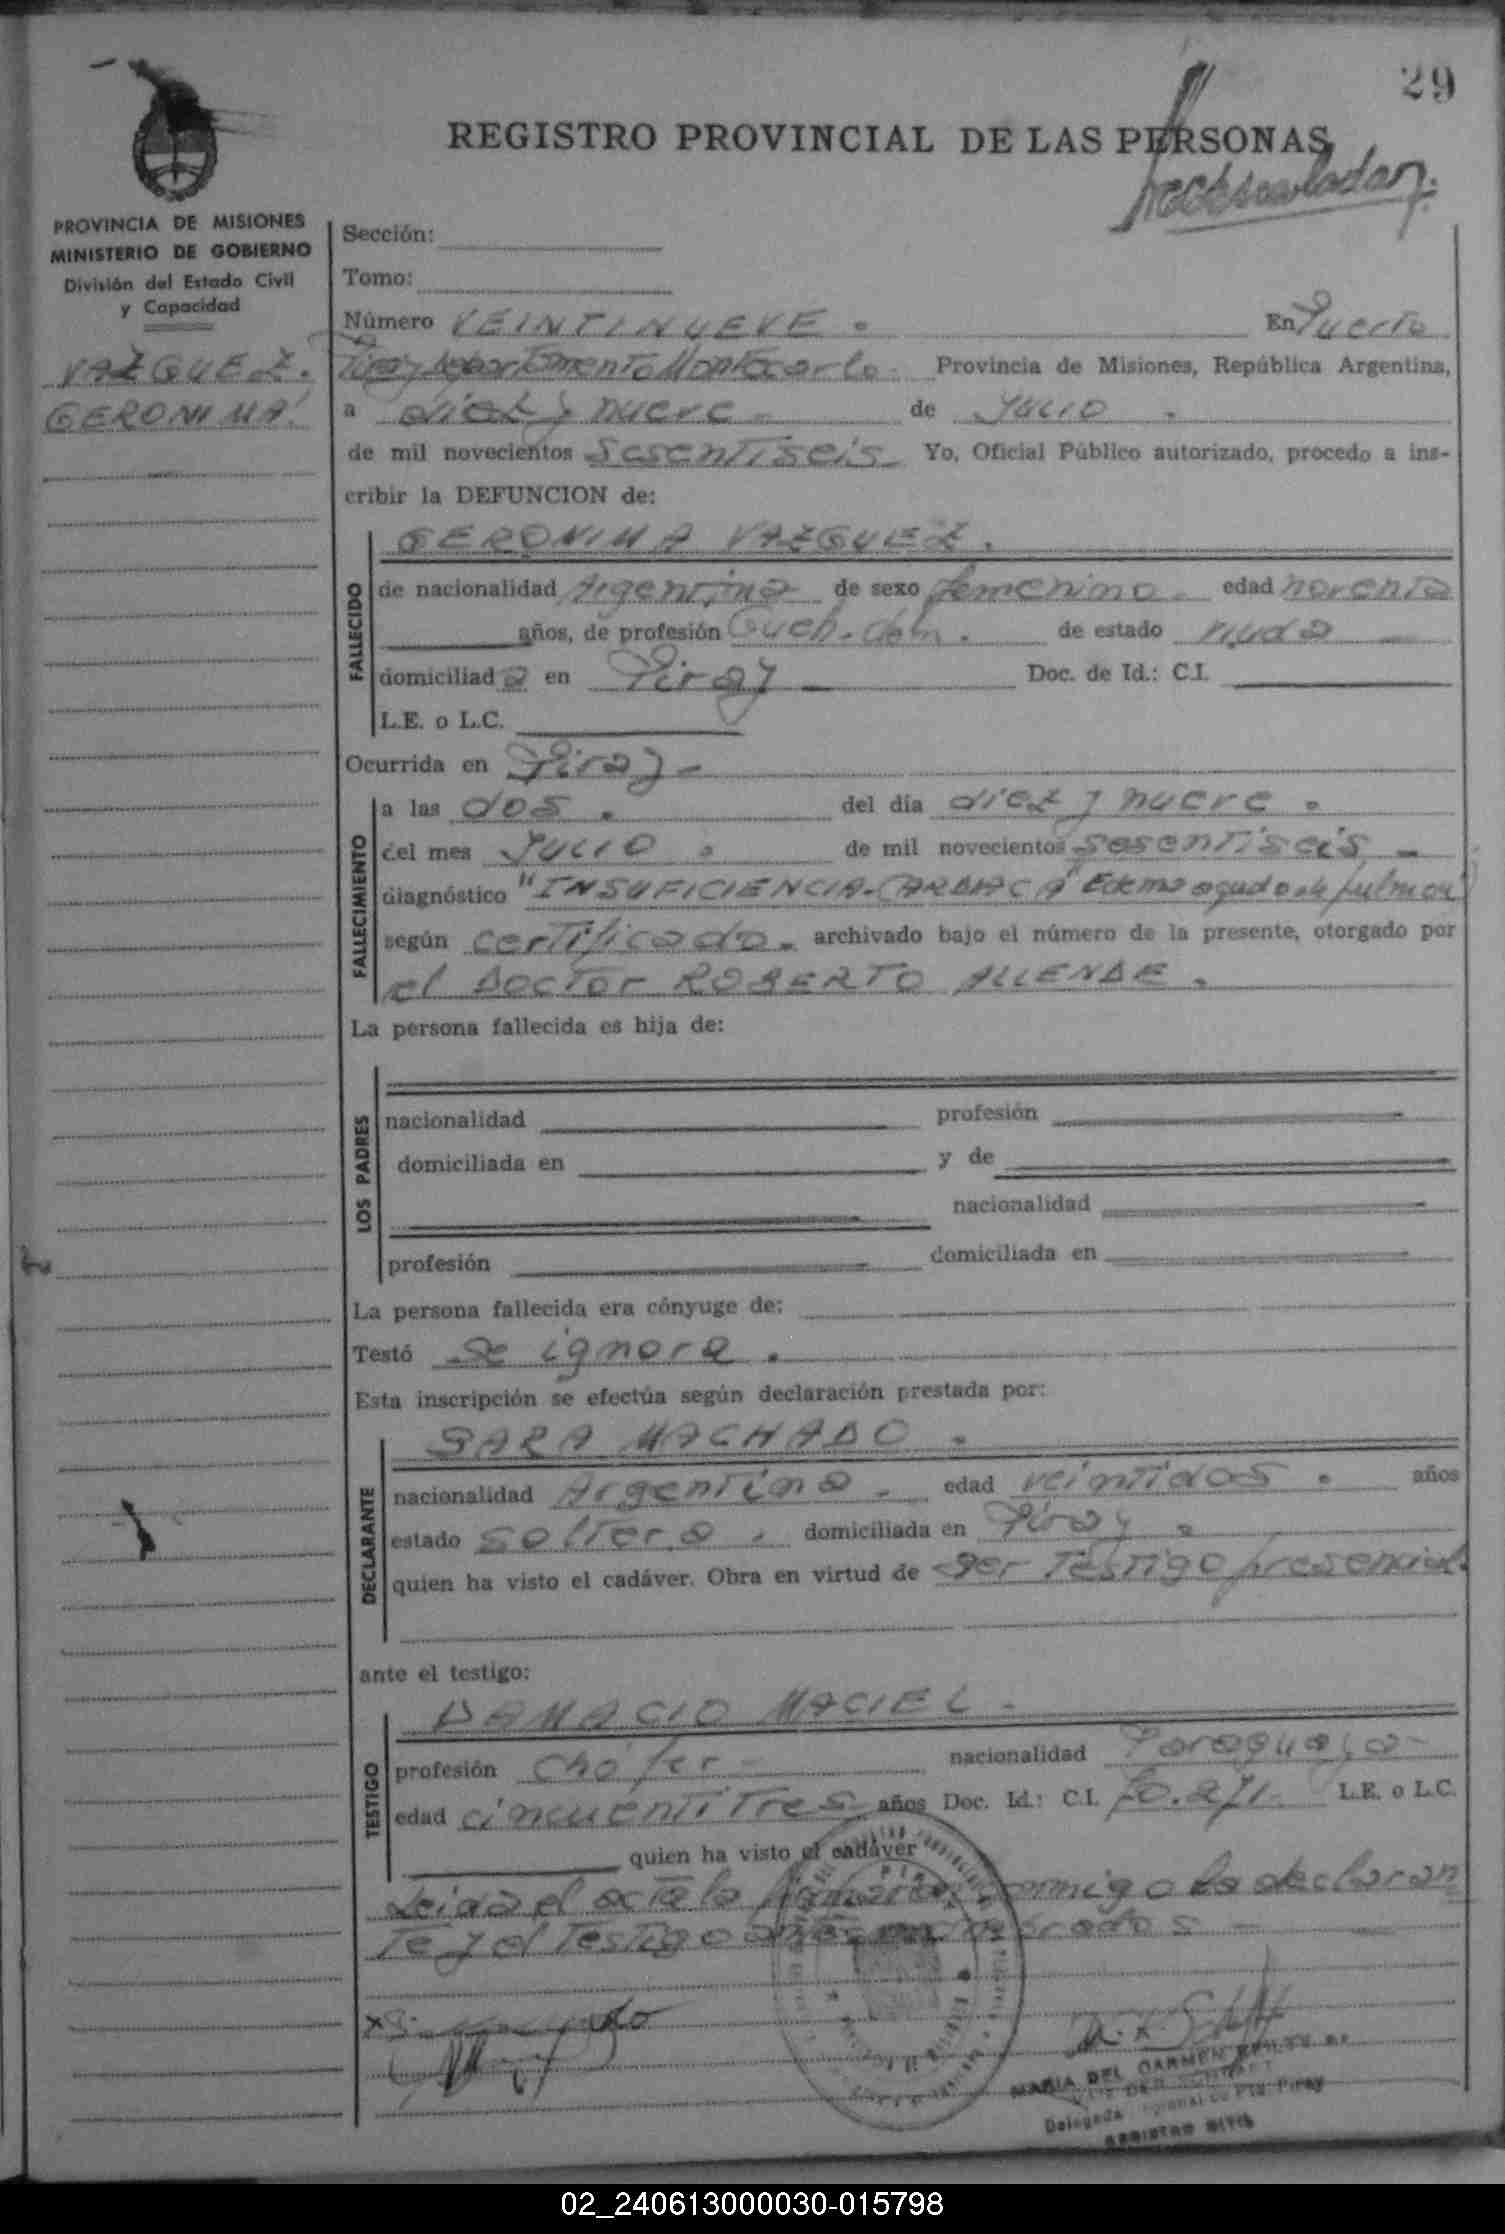 29
REGISTRO PROVINCIAL DE LAS PERSONAS
PROVINCIA DE MISIONES
MINISTERIO DE GOBIERNO
División del Estado Civil
y Capacidad
VAZGUEZ.
GERONIMA.
Sección:
Tomo:
Número VEINTINUEVE. En Puerto
Piray Departamento Montecarlo. Provincia de Misiones, República Argentina,
a diez y nueve. de Julio.
de mil novecientos sesentiseis Yo, Oficial Público autorizado, procedo a ins-
cribir la DEFUNCION de:
FALLECIDO
GERONIMA VAZGUEZ.
de nacionalidad Argentina de sexo femenino. edad noventa
años, de profesión Queh. dom. de estado viuda
domiciliada en Piray Doc. de Id.: C.I.
L.E. o L.C.
Ocurrida en Piray
FALLECIMIENTO
a las dos. del día diez y nueve.
del mes Julio. de mil novecientos sesentiseis
diagnóstico "INSUFICIENCIA-CARDIACA" Edema agudo de pulmon
según certificado. archivado bajo el número de la presente, otorgado por
el Doctor ROBERTO ALLENDE.
La persona fallecida es hija de:
LOS PADRES
nacionalidad profesión
domiciliada en y de
nacionalidad
profesión domiciliada en
La persona fallecida era cónyuge de:
Testó se ignora.
Esta inscripción se efectúa según declaración prestada por:
DECLARANTE
SARA MACHADO.
nacionalidad Argentina. edad veintidos. años
estado soltera. domiciliada en Piray.
quien ha visto el cadáver. Obra en virtud de ser testigo presencial.
ante el testigo:
TESTIGO
DAMACIO MACIEL.
profesión chofer nacionalidad Paraguayo
edad cincuentitres años Doc. Id.: C.I. L.E. o L.C.
quien ha visto el cadáver
Leida el acta la conmigo la declaran
te y el Testigo
MARIA DEL CARMEN
Delegada Pto. Piray
REGISTRO CIVIL
02_240613000030-015798